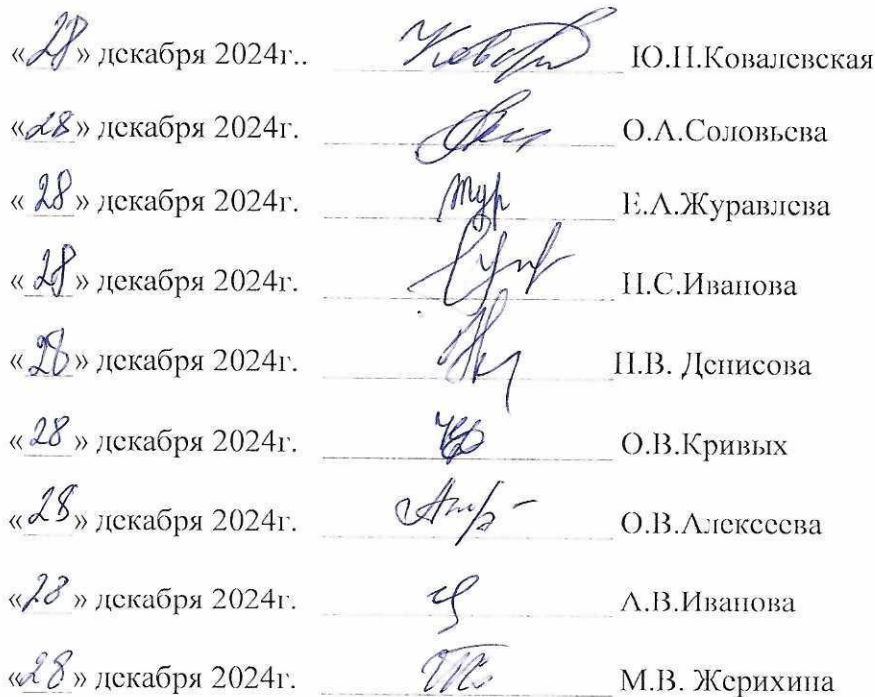 «28» декабря 2024г.. Ю.Н.Ковалевская
«28» декабря 2024г. О.А.Соловьева
«28» декабря 2024г. Е.А.Журавлева
«28» декабря 2024г. Н.С.Иванова
«28» декабря 2024г. Н.В. Денисова
«28» декабря 2024г. О.В.Кривых
«28» декабря 2024г. О.В.Алексеева
«28» декабря 2024г. А.В.Иванова
«28» декабря 2024г. М.В. Жерихина